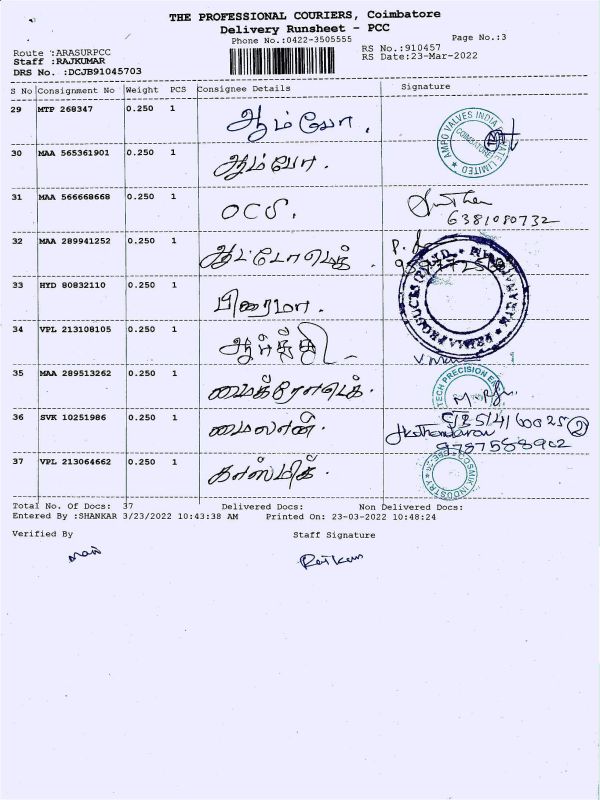 THE PROFESSIONAL COURIERS, Coimbatore
Delivery Runsheet - PCC
Phone No.:0422-3505555 Page No.:3
Route :ARASURPCC RS No.:910457
Staff :RAJKUMAR RS Date:23-Mar-2022
DRS No. :DCJB91045703
S No Consignment No Weight PCS Consignee Details Signature
29 MTP 268347 0.250 1 ஆம்போ.
30 MAA 565361901 0.250 1 ஆம்போ.
AMPO VALVES INDIA PRIVATE LIMITED
COIMBATORE
31 MAA 566668668 0.250 1 OCS.
6381080732
32 MAA 289941252 0.250 1
33 HYD 80832110 0.250 1 பிரைமா.
34 VPL 213108105 0.250 1
35 MAA 289513262 0.250 1
TECH PRECISION
36 SVK 10251986 0.250 1
9787588902
37 VPL 213064662 0.250 1 காஸ்மிக்.
COSMIK INDUSTRY
Total No. Of Docs: 37 Delivered Docs: Non Delivered Docs:
Entered By :SHANKAR 3/23/2022 10:43:38 AM Printed On: 23-03-2022 10:48:24
Verified By Staff Signature